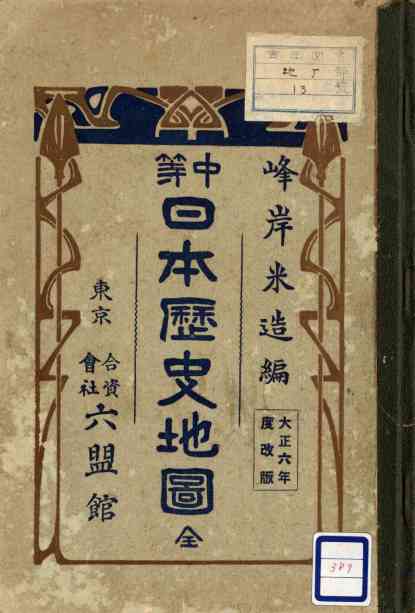 峰岸米造編
大正六年
度改版
中等
日本歷史地圖
全
東京
合資
會社
六盟館
地丁
13
389